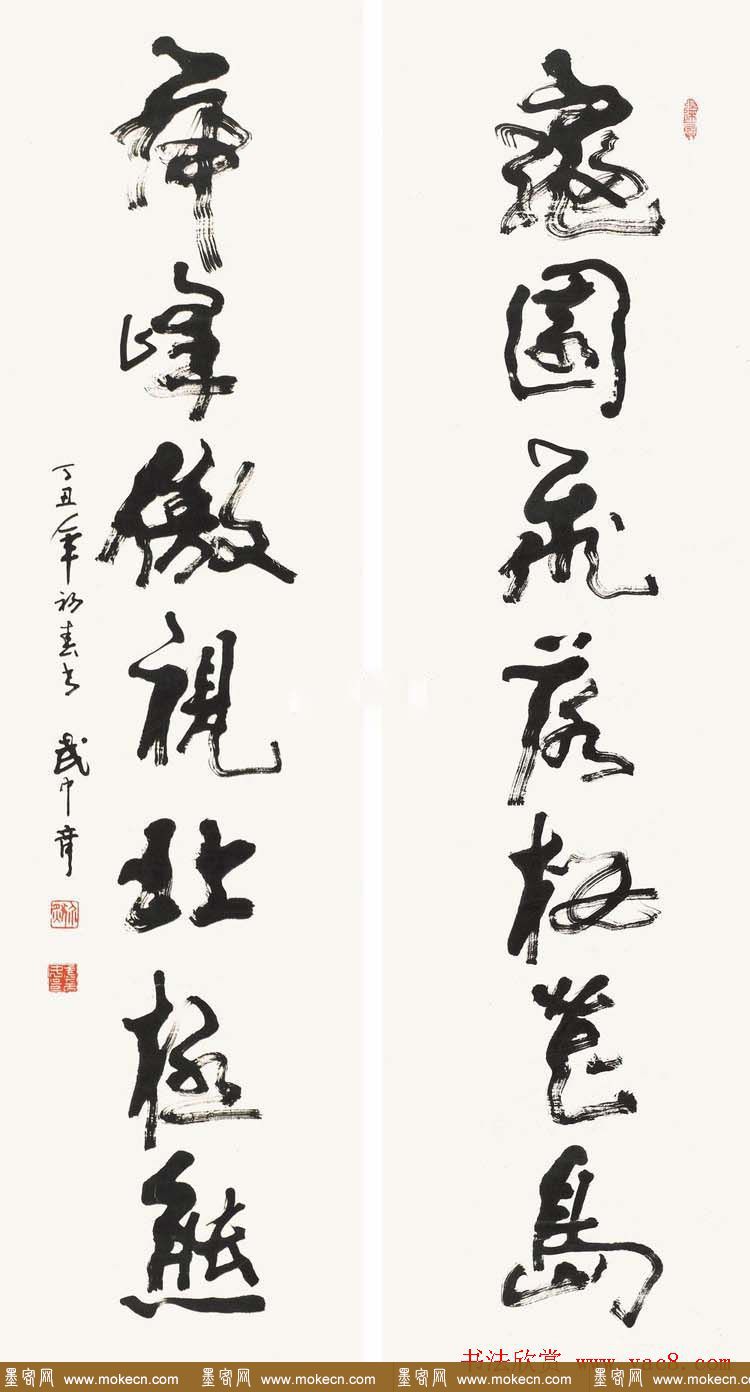 園飛落花島
峰傲視北極熊
丁丑年初春书 武中奇
书法欣赏 www.yac8.com
墨客网 www.mokecn.com 墨客网 www.mokecn.com 墨客网 www.mokecn.com 墨客网 www.mokecn.com